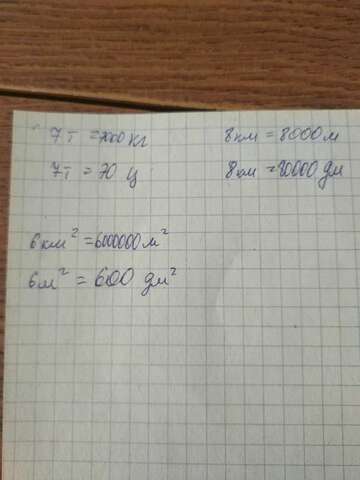 7т = 7000 кг
8 км = 8000 м
7т = 70 ц
8 км = 80000 дм
6 км² = 6000000 м²
6 м² = 600 дм²